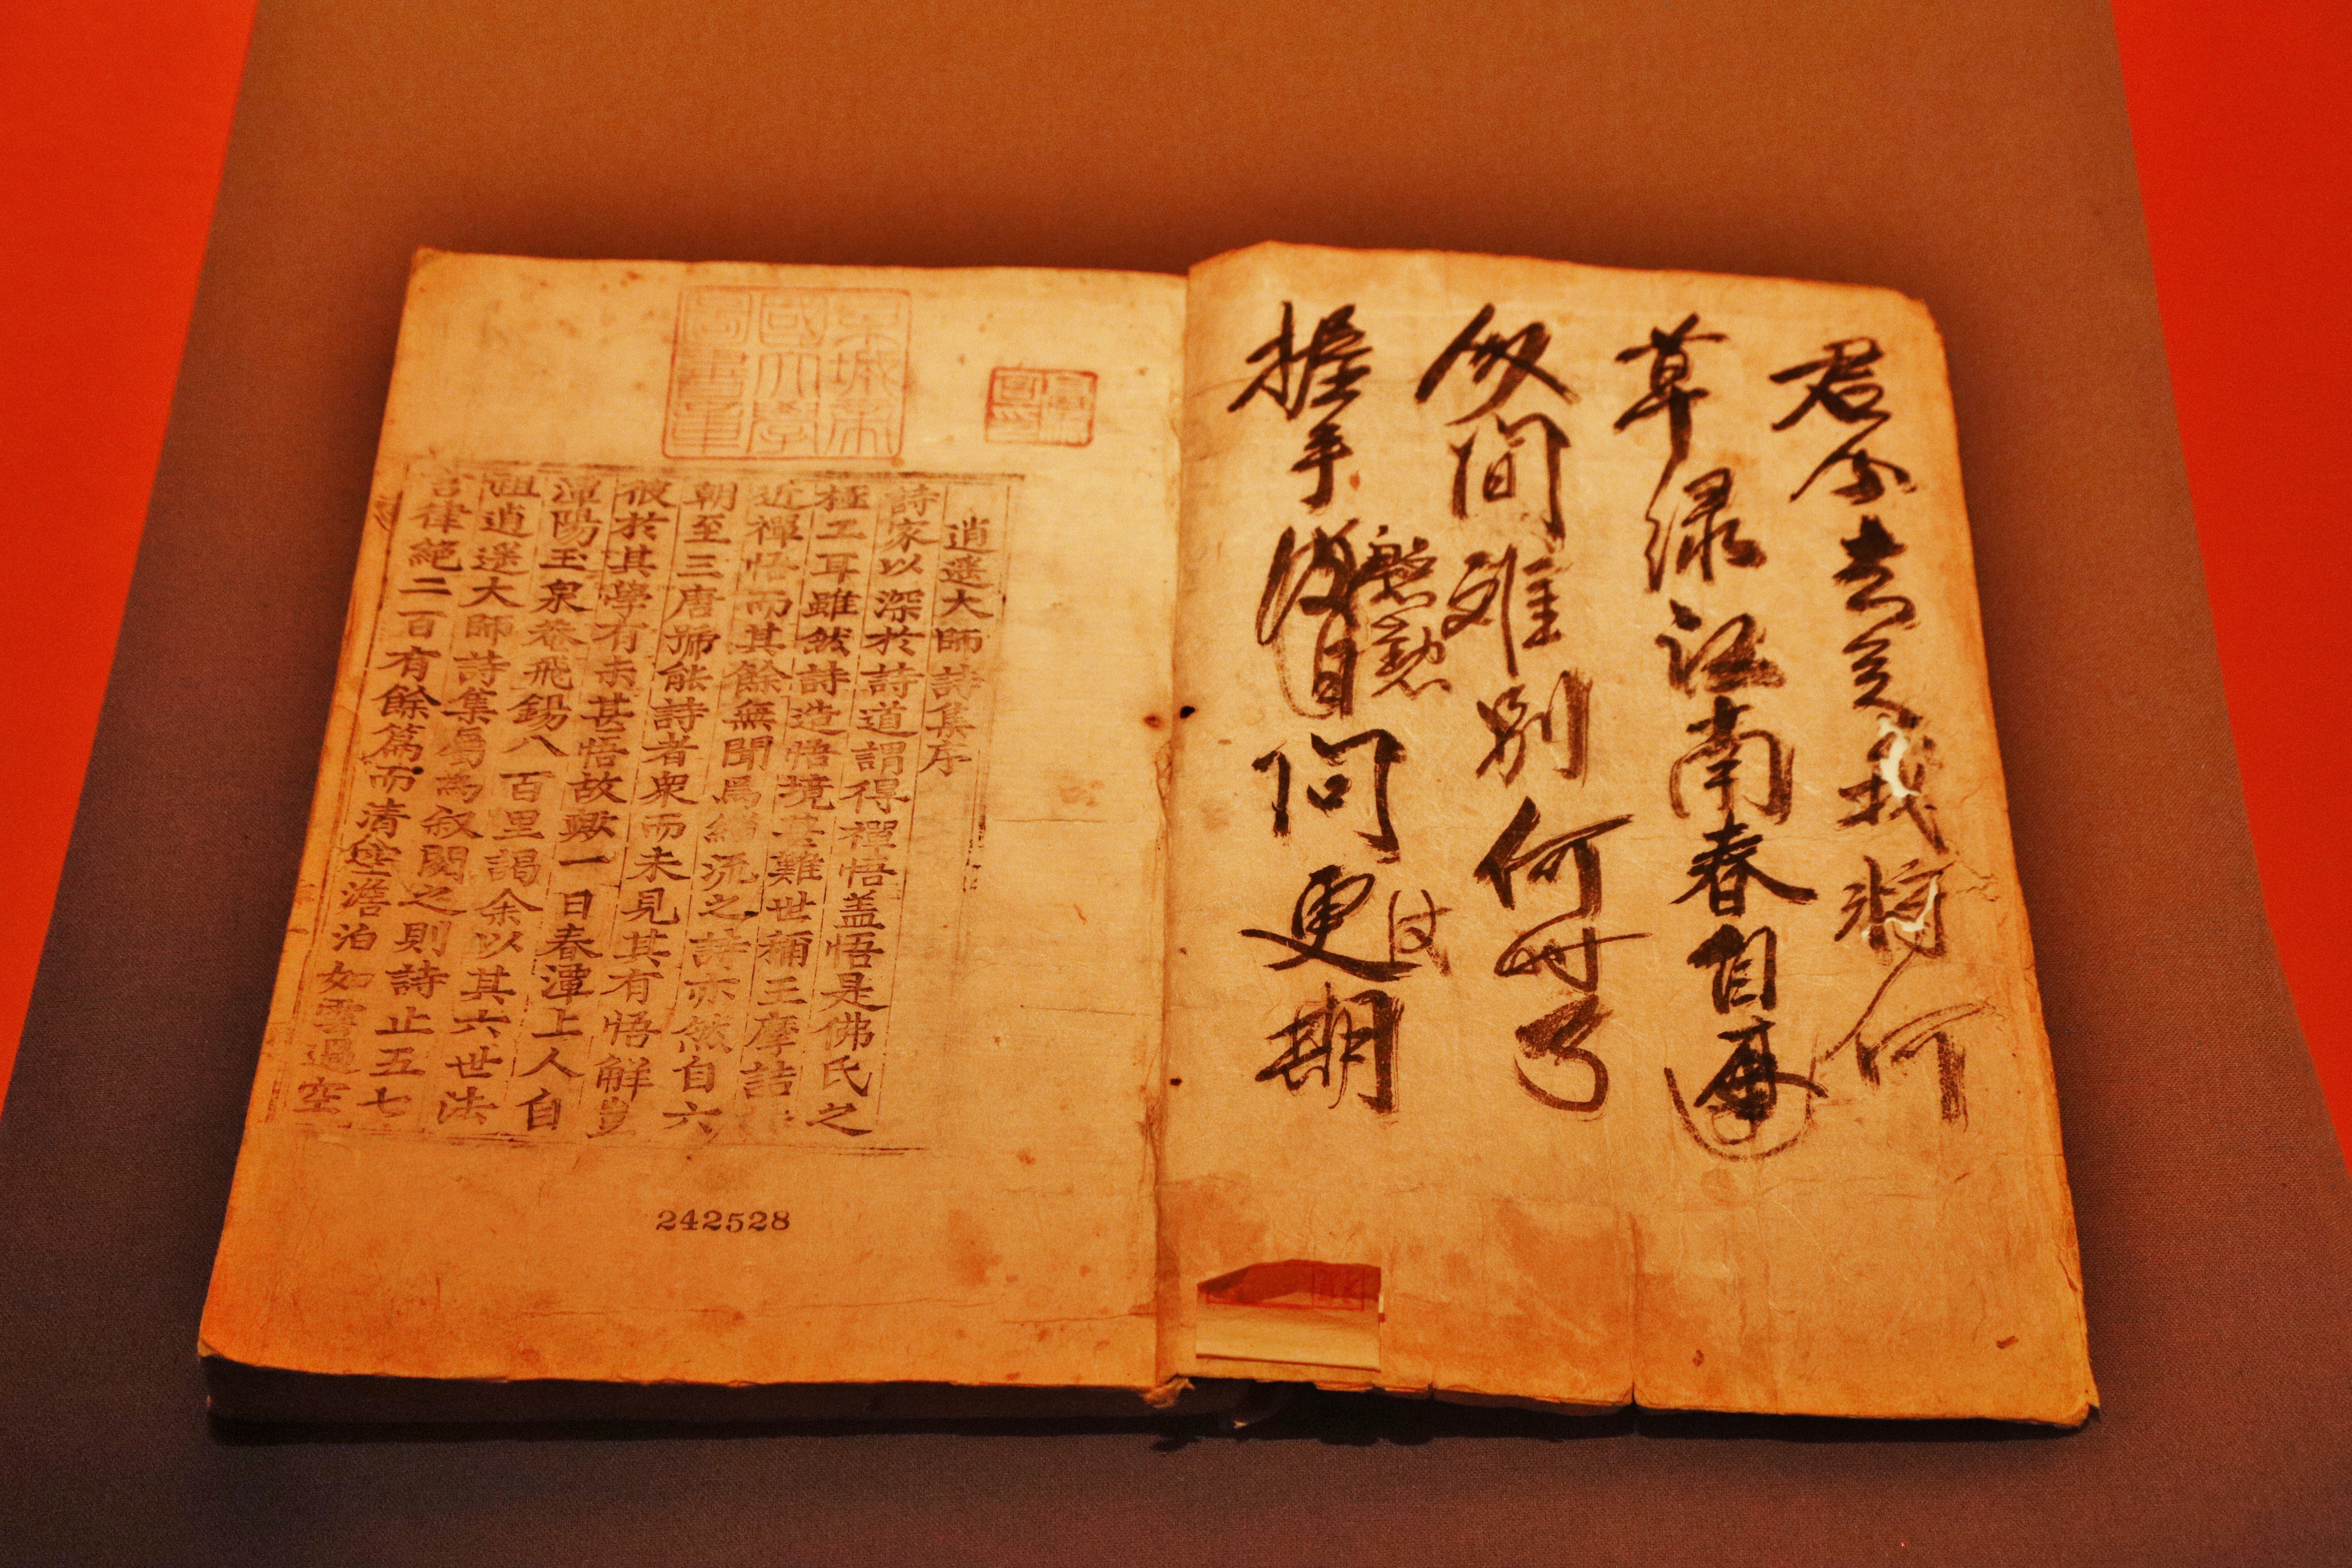 君今去矣我將何
草绿江南春自再
間难別何了
慇懃
握手問更期
京城帝
國大學
圖書章
逍遥大師詩集序
詩家以深於詩道謂得禪悟盖悟是佛氏之
極工耳雖然詩造悟境甚難世稱王摩詰
近禪悟而其餘無聞焉緇流之詩亦然自六
朝至三唐號能詩者衆而未見其有悟解豈
彼於其學有未甚悟故歟一日春潭上人自
潭陽玉泉菴飛錫八百里謁余以其六世法
祖逍遥大師詩集屬為叙閱之則詩止五七
言律絕二百有餘篇而清空澹泊如雲過空
242528